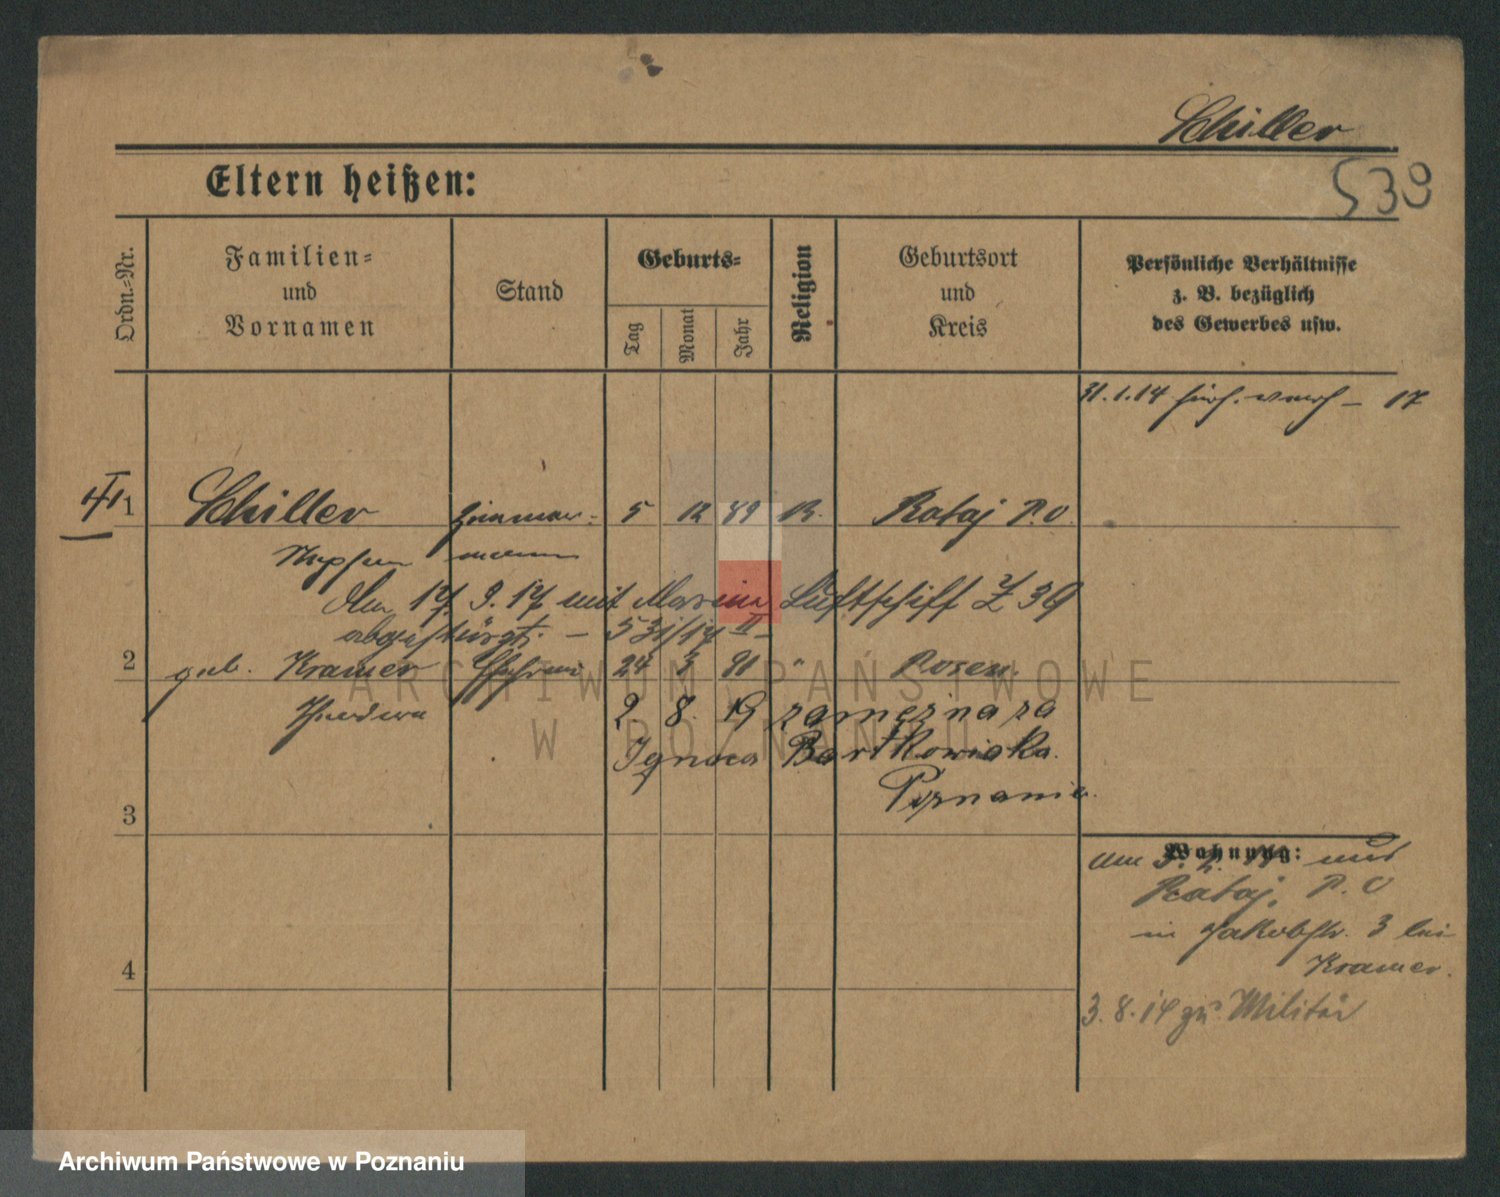 Schiller
539
Eltern heißen:
Ordn.-Nr.
Familien-
und
Vornamen
Stand
Geburts-
Tag
Monat
Jahr
Religion
Geburtsort
und
Kreis
Persönliche Verhältnisse
z. B. bezüglich
des Gewerbes usw.
31.1.14 17
1 Schiller Zimmer- 5 12 89 Rataj P.O.
mann
Am 17. 9. 17 mit Marine Luftschiff Z 39
abgestürzt. – 531/17 II –
2 geb. Kramer Ehefrau 24 3 91 " Posen.
2 8. 19 zamężna za
Ignaca Bartkowiaka
Poznania.
3
Wohnung:
am aus
Rataj, P. O
in Jakobstr. 3 bei
Kramer.
4
3. 8. 14 zu Militär
ARCHIWUM PAŃSTWOWE
W POZNANIU
Archiwum Państwowe w Poznaniu